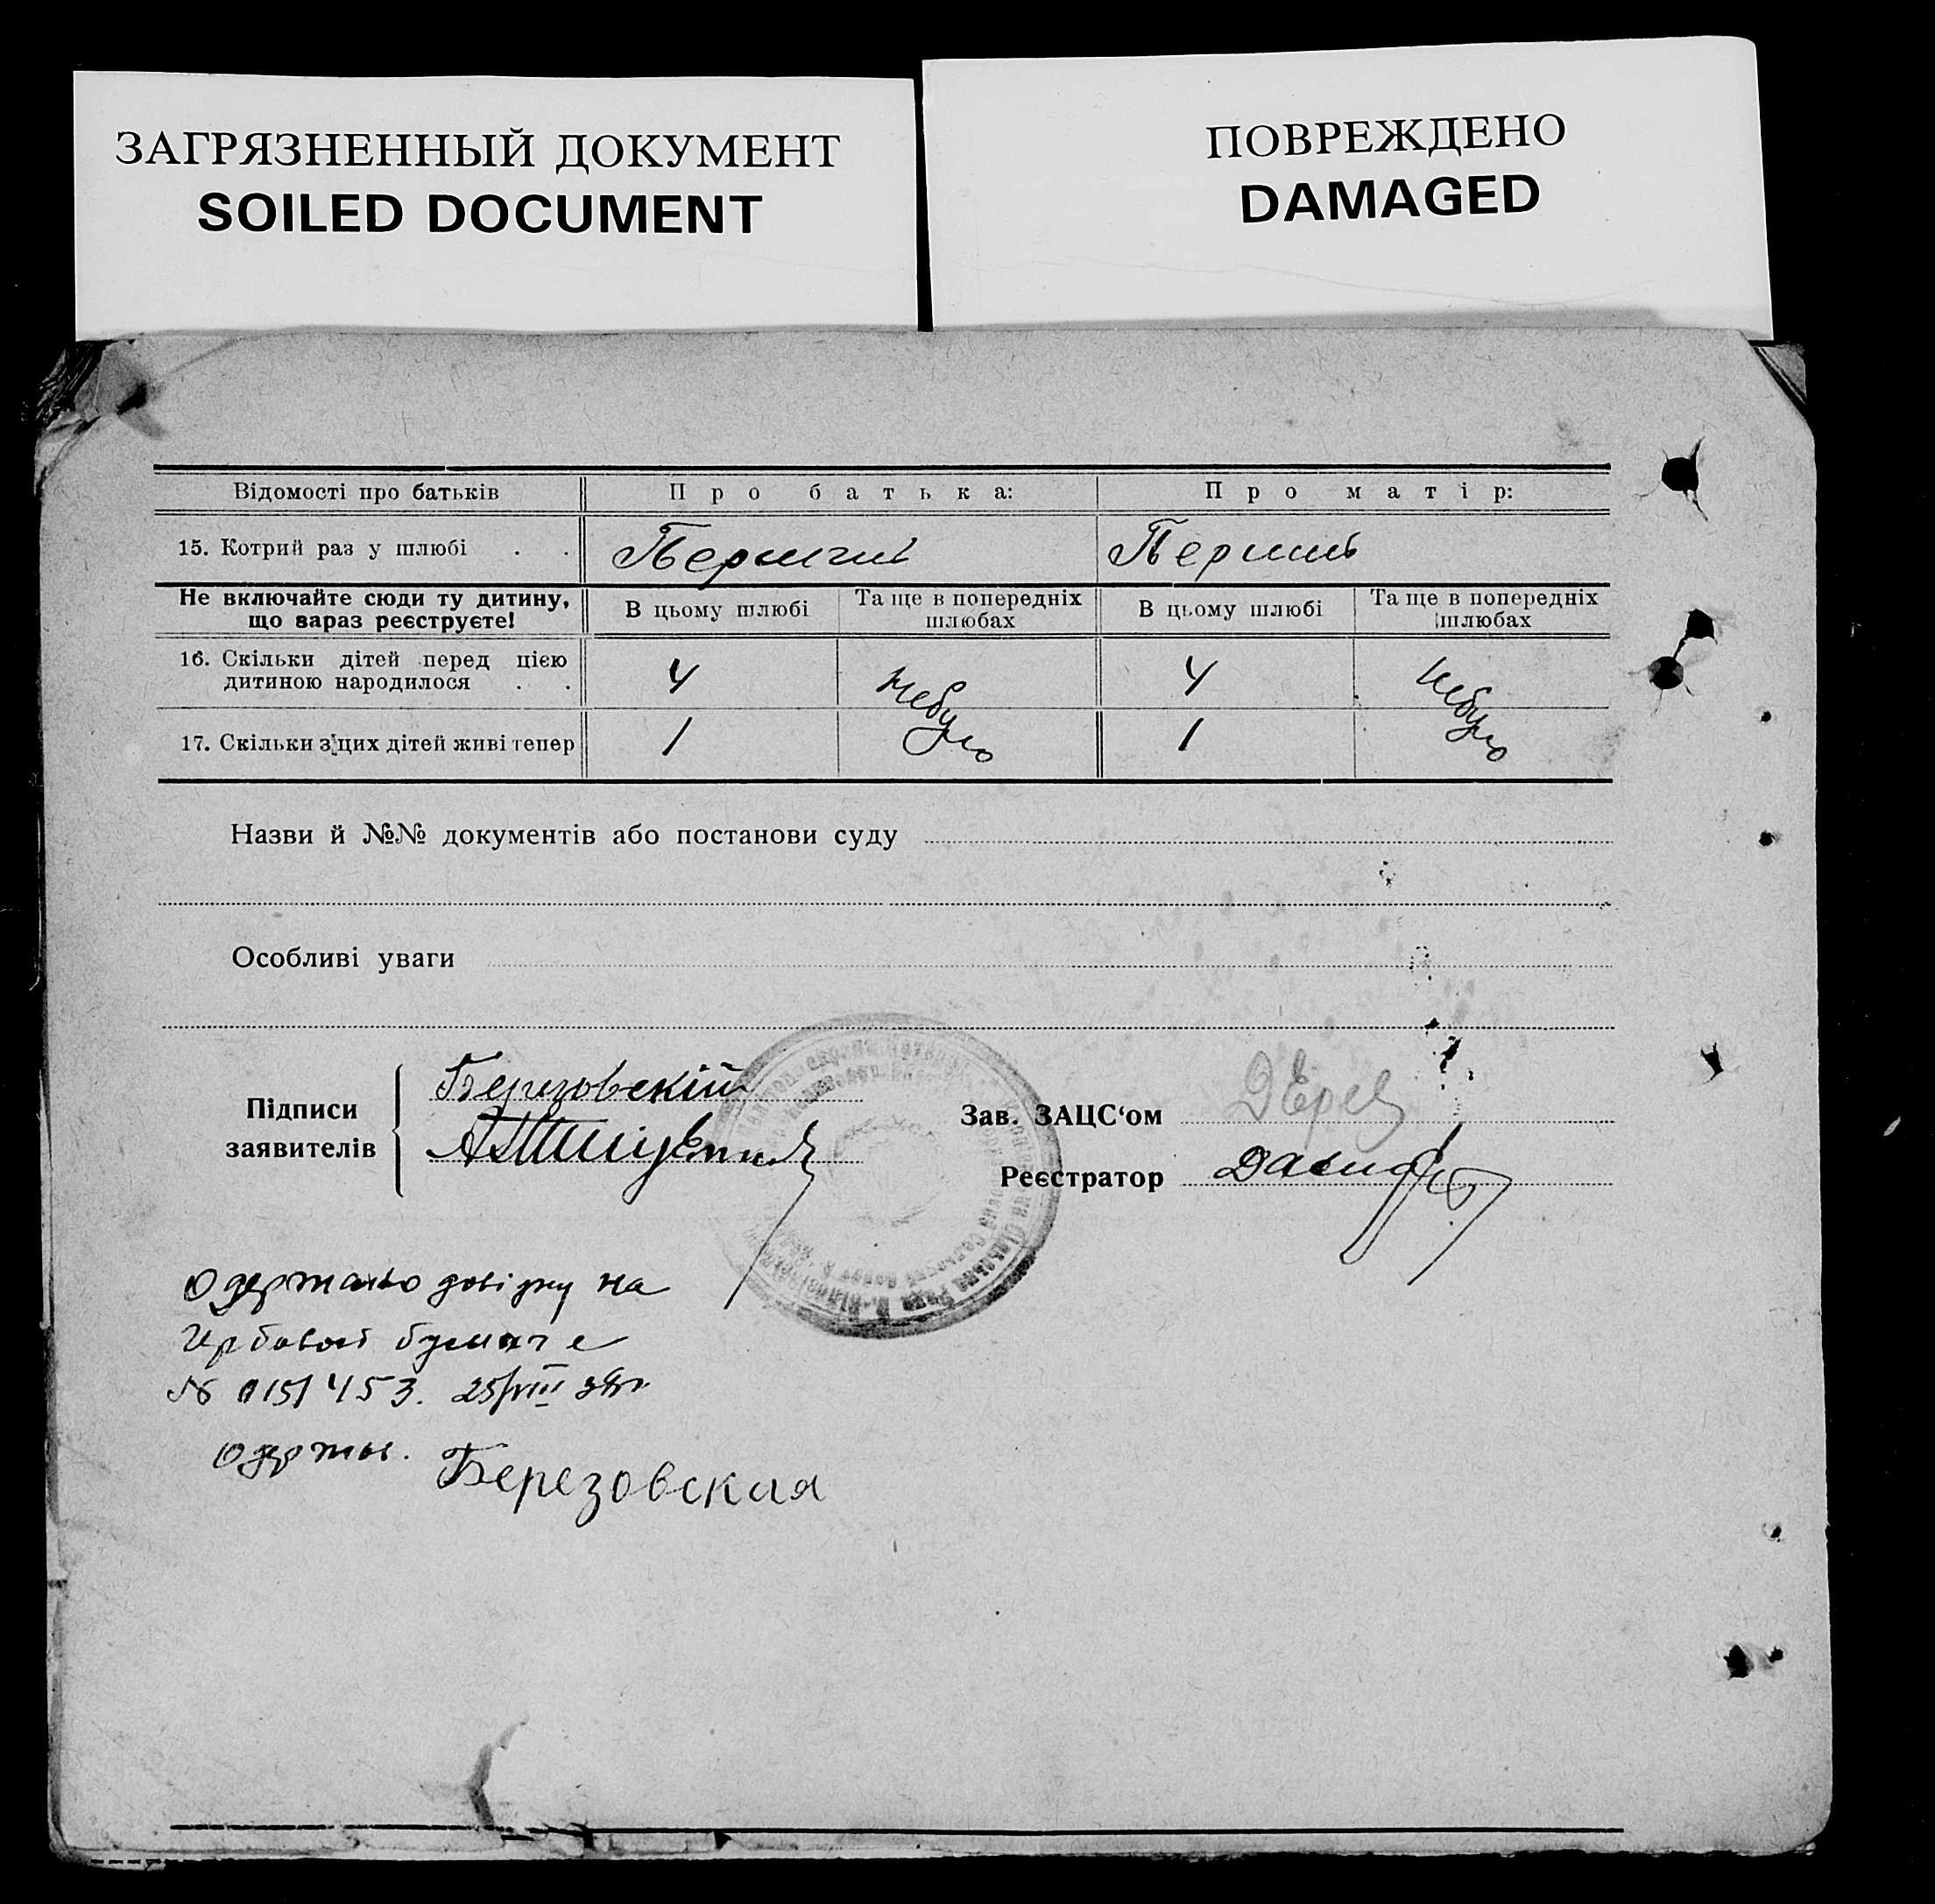 ЗАГРЯЗНЕННЫЙ ДОКУМЕНТ
SOILED DOCUMENT
ПОВРЕЖДЕНО
DAMAGED
Відомості про батьків Про батька: Про матір:
15. Котрий раз у шлюбі . . Перший Перший
Не включайте сюди ту дитину, що вараз реєструєте! В цьому шлюбі Та ще в попередніх шлюбах В цьому шлюбі Та ще в попередніх шлюбах
16. Скільки дітей перед цією дитиною народилося . . 4 небуло 4 небуло
17. Скільки з цих дітей живі тепер 1 1
Назви й №№ документів або постанови суду
Особливі уваги
Підписи заявителів
Березовскій
Зав. ЗАЦС‘ом
Реєстратор
Одержано довідку на
Гербовой бумаге
№ 0151453. 25/VIII
Одерж.
Березовская